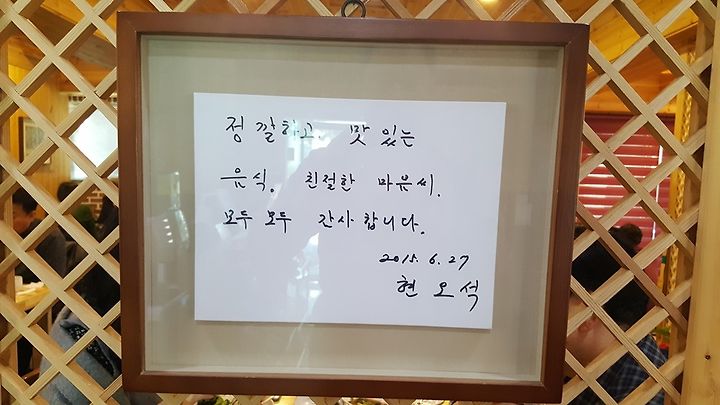 정갈하고. 맛있는
음식. 친절한 마음씨.
모두 모두 감사합니다.
2015. 6. 27
현 오 석